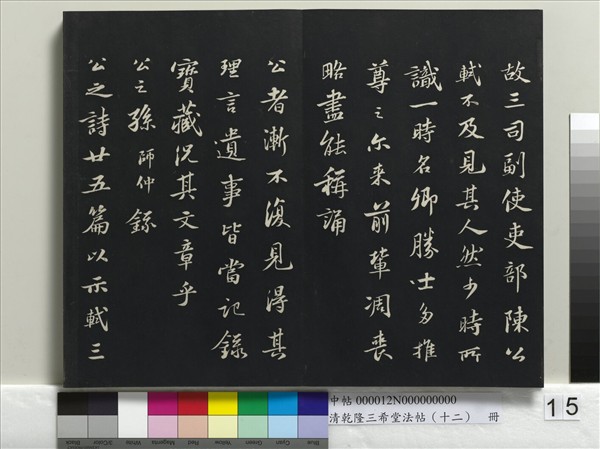 故三司副使吏部陳公
軾不及見其人然少時所
識一時名卿勝士多推
尊之尒來前輩凋喪
略盡能稱誦
公者漸不復見得其
理言遺事皆當記錄
寶藏況其文章乎
公之孫師仲錄
公之詩廿五篇以示軾三
中帖 000012N000000000
清乾隆三希堂法帖（十二） 冊
15
Blue
Cyan
Green
Yellow
Red
Magenta
White
3/Color
Black